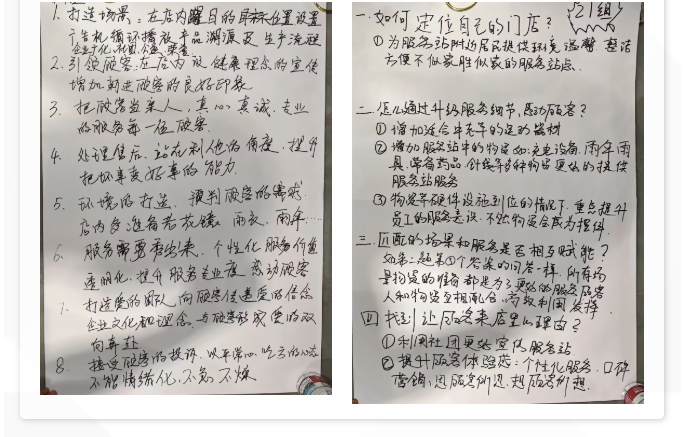 1. 打造场景：在店内醒目的目标位置设置
广告机循环播放产品溯源及生产流程
企业文化、社团、公益、荣誉
2. 引领顾客，在店内设健康理念的宣传
增加新进顾客的良好印象
3. 把顾客当亲人，真心真诚、专业
的服务每一位顾客
4. 处理售后，站在利他的角度，提升
把坏事变好事的能力
5. 环境的打造，预判顾客的需求
店内多准备老花镜、雨衣、雨伞……
6. 服务需要秀出来，个性化服务价值
透明化，提升服务专业度，感动顾客
7. 打造爱的 向顾客传递爱的信念
企业文化 理念，与顾客形成爱的双
向奔赴
8. 接受顾客的投诉，以平常心，吃亏的心态
不能情绪化，不急不燥
21组
一、如何定位自己的门店？
① 为服务站附近居民提供环境温馨 整洁
方便不似家胜似家的服务站点
二、怎么通过升级服务细节，感动顾客？
① 增加适合中老年的运动器材
② 增加服务站中的物品如：充电设备、雨伞雨
具、常备药品、针线等多种物品更好的提供
服务站服务
③ 物品等硬件设施到位的情况下，重点提升
员工的服务意识，不然物品会成为摆件
三、匹配的场景和服务是否相互赋能？
如第二题第 个答案的回答一样，所有场
景物品的准备都是为了更好的服务顾客
人和物品互相配合，有效利用发挥
四、找到让顾客来店里的理由？
① 利用社团更好宣传服务站
② 提升顾客体验感：个性化服务、口碑
营销，思顾客所思，想顾客所想